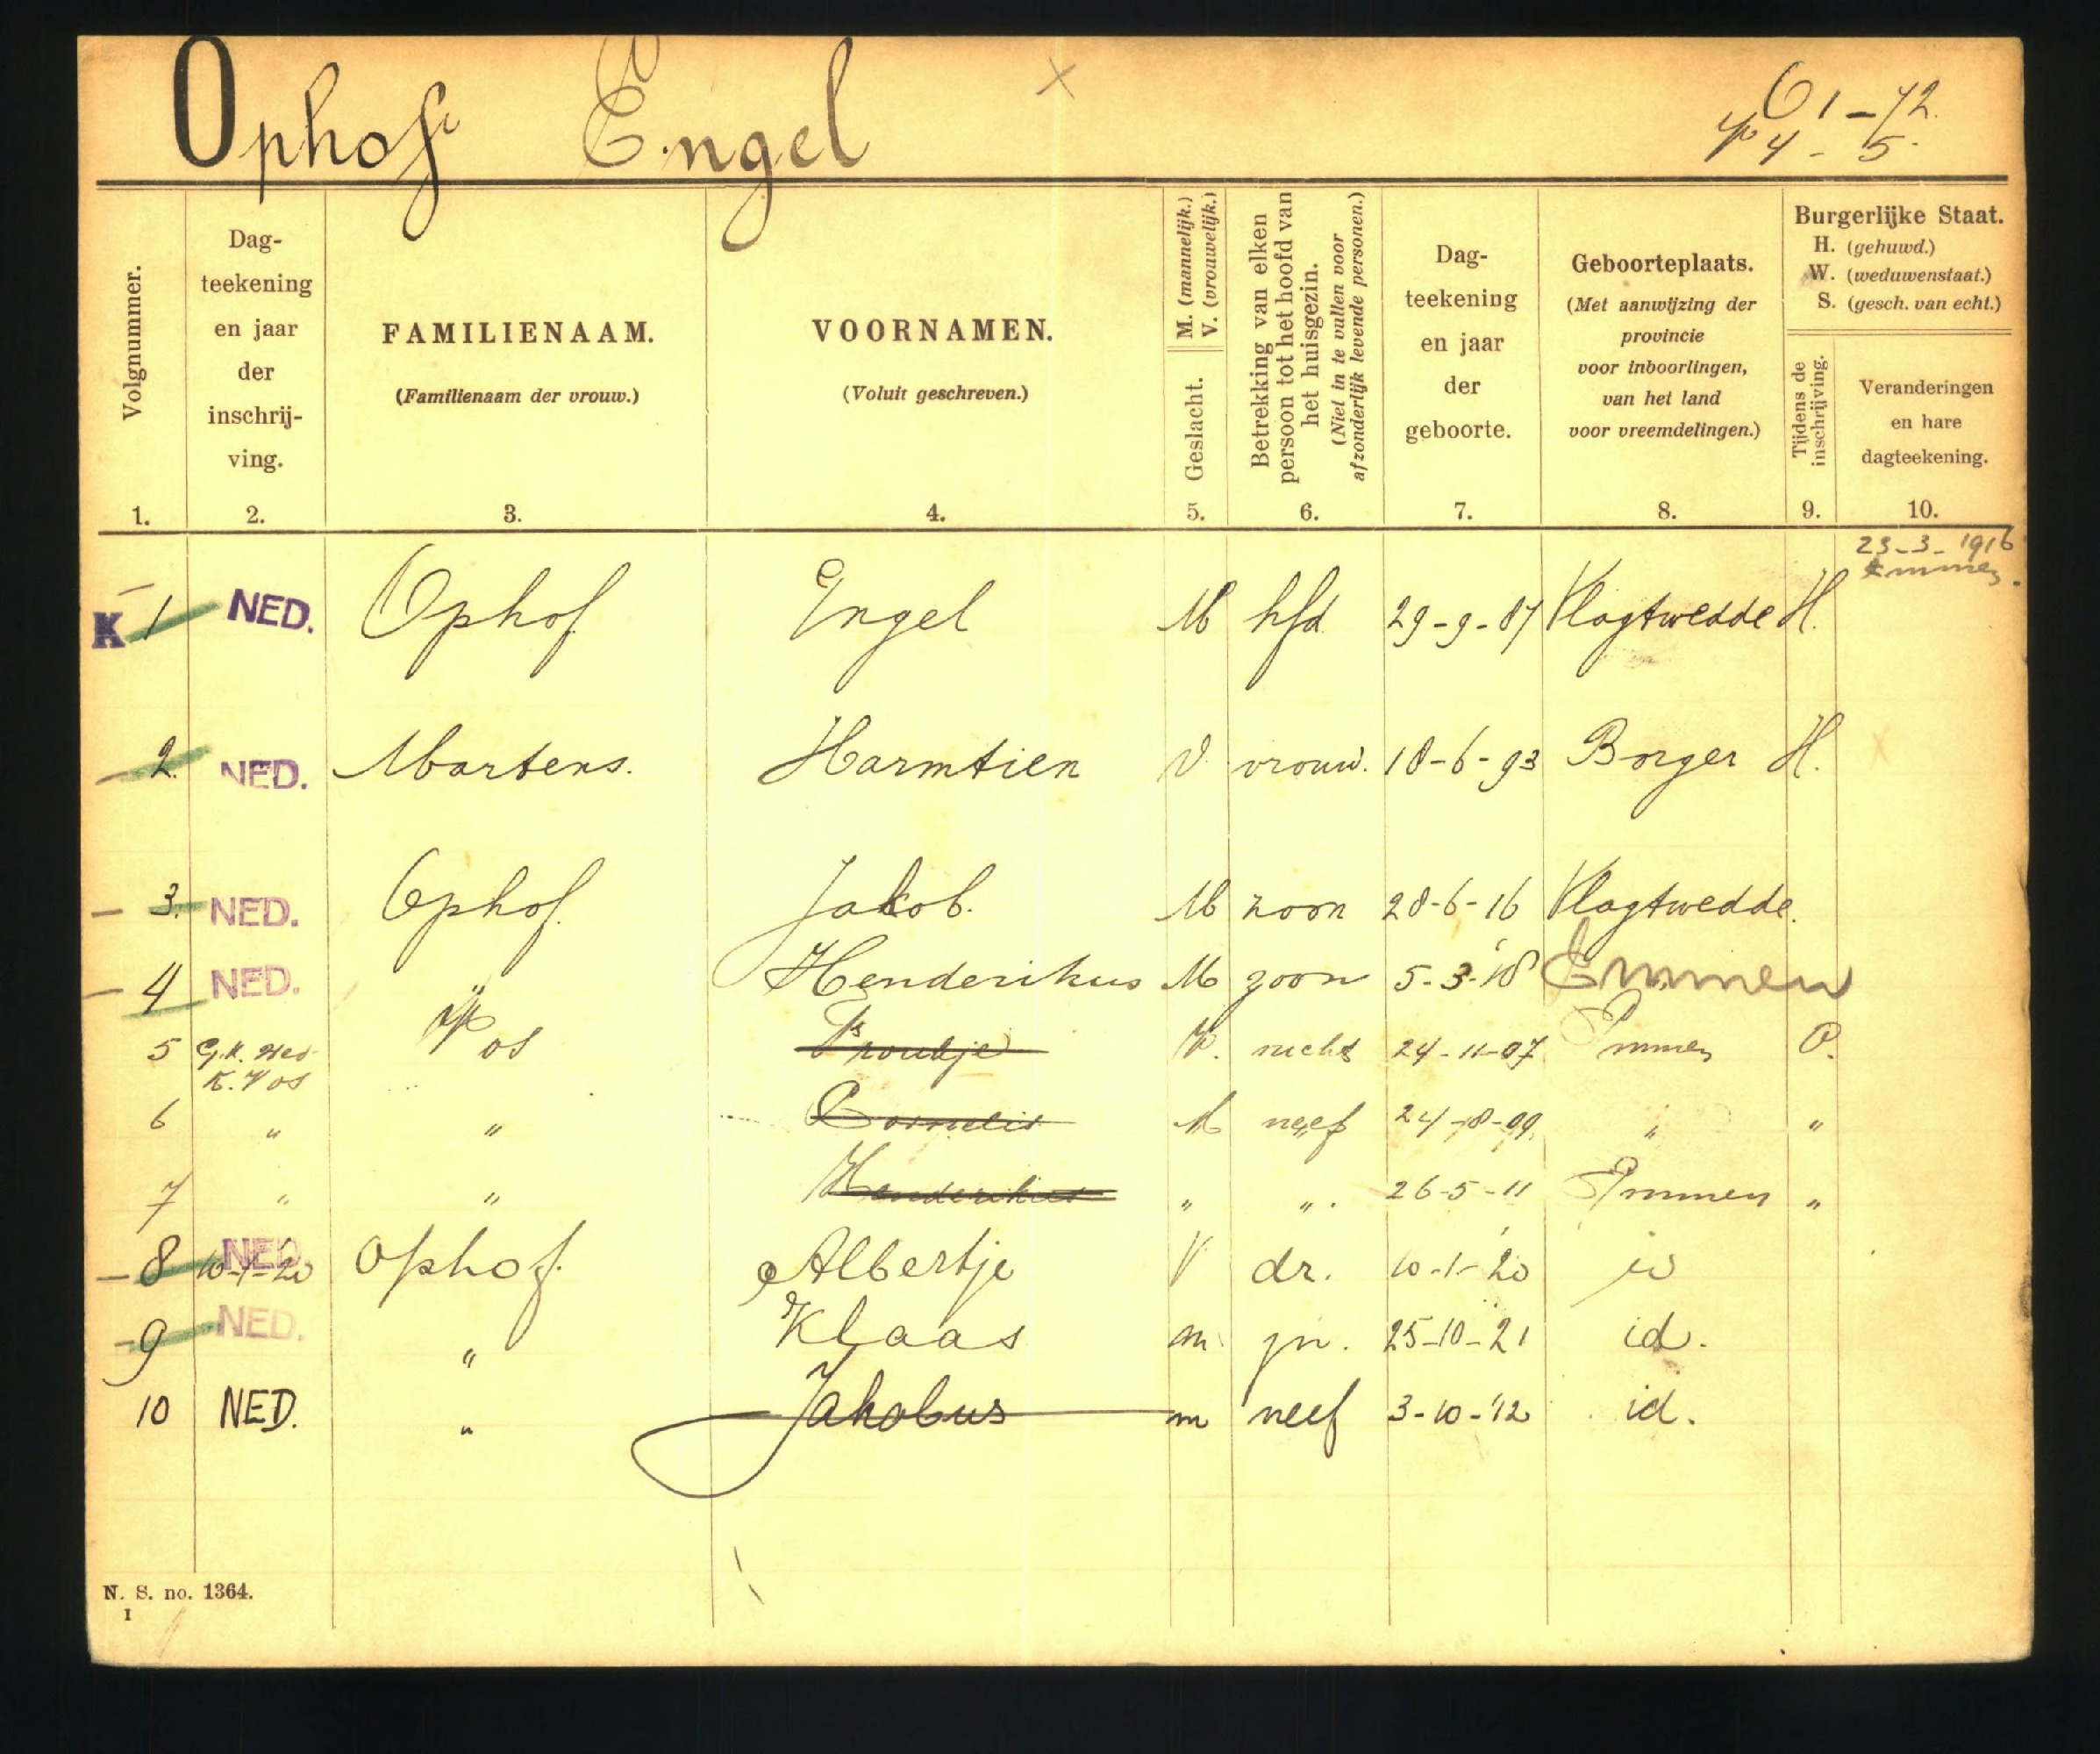 Ophof Engel
C 1-72.
4-5.
Volgnummer.
Dag-
teekening
en jaar
der
inschrij-
ving.
FAMILIENAAM.
(Familienaam der vrouw.)
VOORNAMEN.
(Voluit geschreven.)
Geslacht.
M. (mannelijk.)
V. (vrouwelijk.)
Betrekking van elken
persoon tot het hoofd van
het huisgezin.
(Niet in te vullen voor
afzonderlijk levende personen.)
Dag-
teekening
en jaar
der
geboorte.
Geboorteplaats.
(Met aanwijzing der
provincie
voor inboorlingen,
van het land
voor vreemdelingen.)
Burgerlijke Staat.
H. (gehuwd.)
W. (weduwenstaat.)
S. (gesch. van echt.)
Tijdens de
inschrijving.
Veranderingen
en hare
dagteekening.
1. 2. 3. 4. 5. 6. 7. 8. 9. 10.
23-3-1916
Emmen.
K 1 NED. Ophof Engel M hfd 29-9-87 Vlagtwedde H.
2. NED. Martens. Harmtien V. vrouw. 18-6-93 Borger H.
3. NED. Ophof. Jakob. M zoon 28-6-16 Vlagtwedde.
4 NED. " Henderikus M zoon 5-3-'18 Emmen
5 G.K. Ned. Vos V. nicht 24-11-07 Emmen O.
K. Vos
6 " " Cornelis M neef 24-8-09 " "
7 " " Henderikus " ". 26-5-11 Emmen "
8 NED. 10-1-20 Ophof. Albertje V dr. 10-1-'20 id
9 NED. " Klaas m. zn. 25-10-21 id.
10 NED. " Jakobus m neef 3-10-'12 id.
N. S. no. 1364.
I